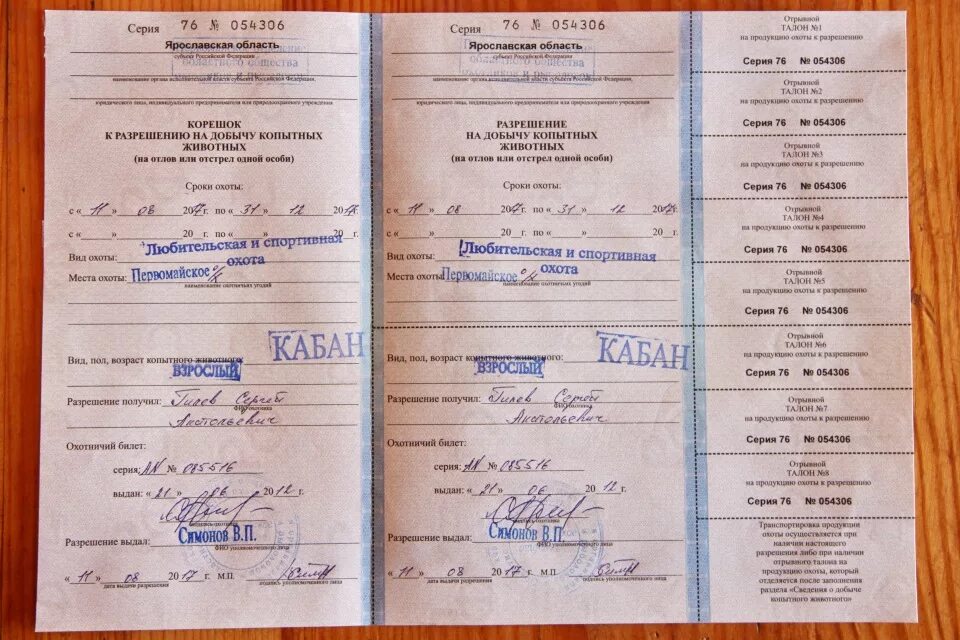 Серия 76 № 054306
Ярославская область
субъект Российской Федерации
областного общества
наименование органа исполнительной власти субъекта Российской Федерации,
юридического лица, индивидуального предпринимателя или природоохранного учреждения
КОРЕШОК
К РАЗРЕШЕНИЮ НА ДОБЫЧУ КОПЫТНЫХ
ЖИВОТНЫХ
(на отлов или отстрел одной особи)
Сроки охоты:
с « 11 » 08 2017 г. по « 31 » 12 2017 г.
с « » 20 г. по « » 20 г.
Вид охоты: Любительская и спортивная
охота
Места охоты: Первомайское о/х
наименование охотничьих угодий
КАБАН
Вид, пол, возраст копытного животного:
ВЗРОСЛЫЙ
Разрешение получил: Гилев Сергей
ФИО охотника
Анатольевич
Охотничий билет:
серия: АN № 085516
выдан: « 21 » 06 2012 г.
подпись охотника
Симонов В.П.
Разрешение выдал:
ФИО уполномоченного лица
« 11 » 08 2017 г. М.П.
дата выдачи разрешения подпись уполномоченного лица
Серия 76 № 054306
Ярославская область
субъект Российской Федерации
наименование органа исполнительной власти субъекта Российской Федерации,
юридического лица, индивидуального предпринимателя или природоохранного учреждения
РАЗРЕШЕНИЕ
НА ДОБЫЧУ КОПЫТНЫХ
ЖИВОТНЫХ
(на отлов или отстрел одной особи)
Сроки охоты:
с « 11 » 08 2017 г. по « 31 » 12 2017 г.
с « » 20 г. по « » 20 г.
Вид охоты: Любительская и спортивная
охота
Места охоты: Первомайское о/х
наименование охотничьих угодий
КАБАН
Вид, пол, возраст копытного животного:
ВЗРОСЛЫЙ
Разрешение получил: Гилев Сергей
ФИО охотника
Анатольевич
Охотничий билет:
серия: АN № 085516
выдан: « 21 » 06 2012 г.
подпись охотника
Симонов В.П.
Разрешение выдал:
ФИО уполномоченного лица
« 11 » 08 2017 г. М.П.
дата выдачи разрешения подпись уполномоченного лица
Отрывной
ТАЛОН №1
на продукцию охоты к разрешению
Серия 76 № 054306
Отрывной
ТАЛОН №2
на продукцию охоты к разрешению
Серия 76 № 054306
Отрывной
ТАЛОН №3
на продукцию охоты к разрешению
Серия 76 № 054306
Отрывной
ТАЛОН №4
на продукцию охоты к разрешению
Серия 76 № 054306
Отрывной
ТАЛОН №5
на продукцию охоты к разрешению
Серия 76 № 054306
Отрывной
ТАЛОН №6
на продукцию охоты к разрешению
Серия 76 № 054306
Отрывной
ТАЛОН №7
на продукцию охоты к разрешению
Серия 76 № 054306
Отрывной
ТАЛОН №8
на продукцию охоты к разрешению
Серия 76 № 054306
Транспортировка продукции
охоты осуществляется при
наличии настоящего
разрешения либо при наличии
отрывного талона на
продукцию охоты, который
отделяется после заполнения
раздела «Сведения о добыче
копытного животного»